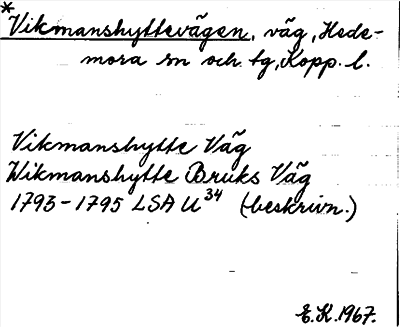 *Vikmanshyttevägen, väg, Hede-
mora sn och tg, Kopp. l.
Vikmanshytte Väg
Wikmanshytte Bruks Väg
1793-1795 LSA U34 (beskrivn.)
E.K. 1967.